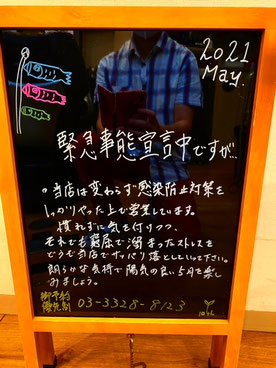 2021
May.
緊急事態宣言中ですが…
当店は変わらず感染防止対策を
しっかりやった上で営業しています。
慣れずに気を付けつつ、
それでも窮屈で溜まったストレスを
どうぞ当店でサッパリ落としていって下さい。
朗らかな気持で陽気の良い5月を楽し
みましょう。
御予約
優先制
03-3328-8123